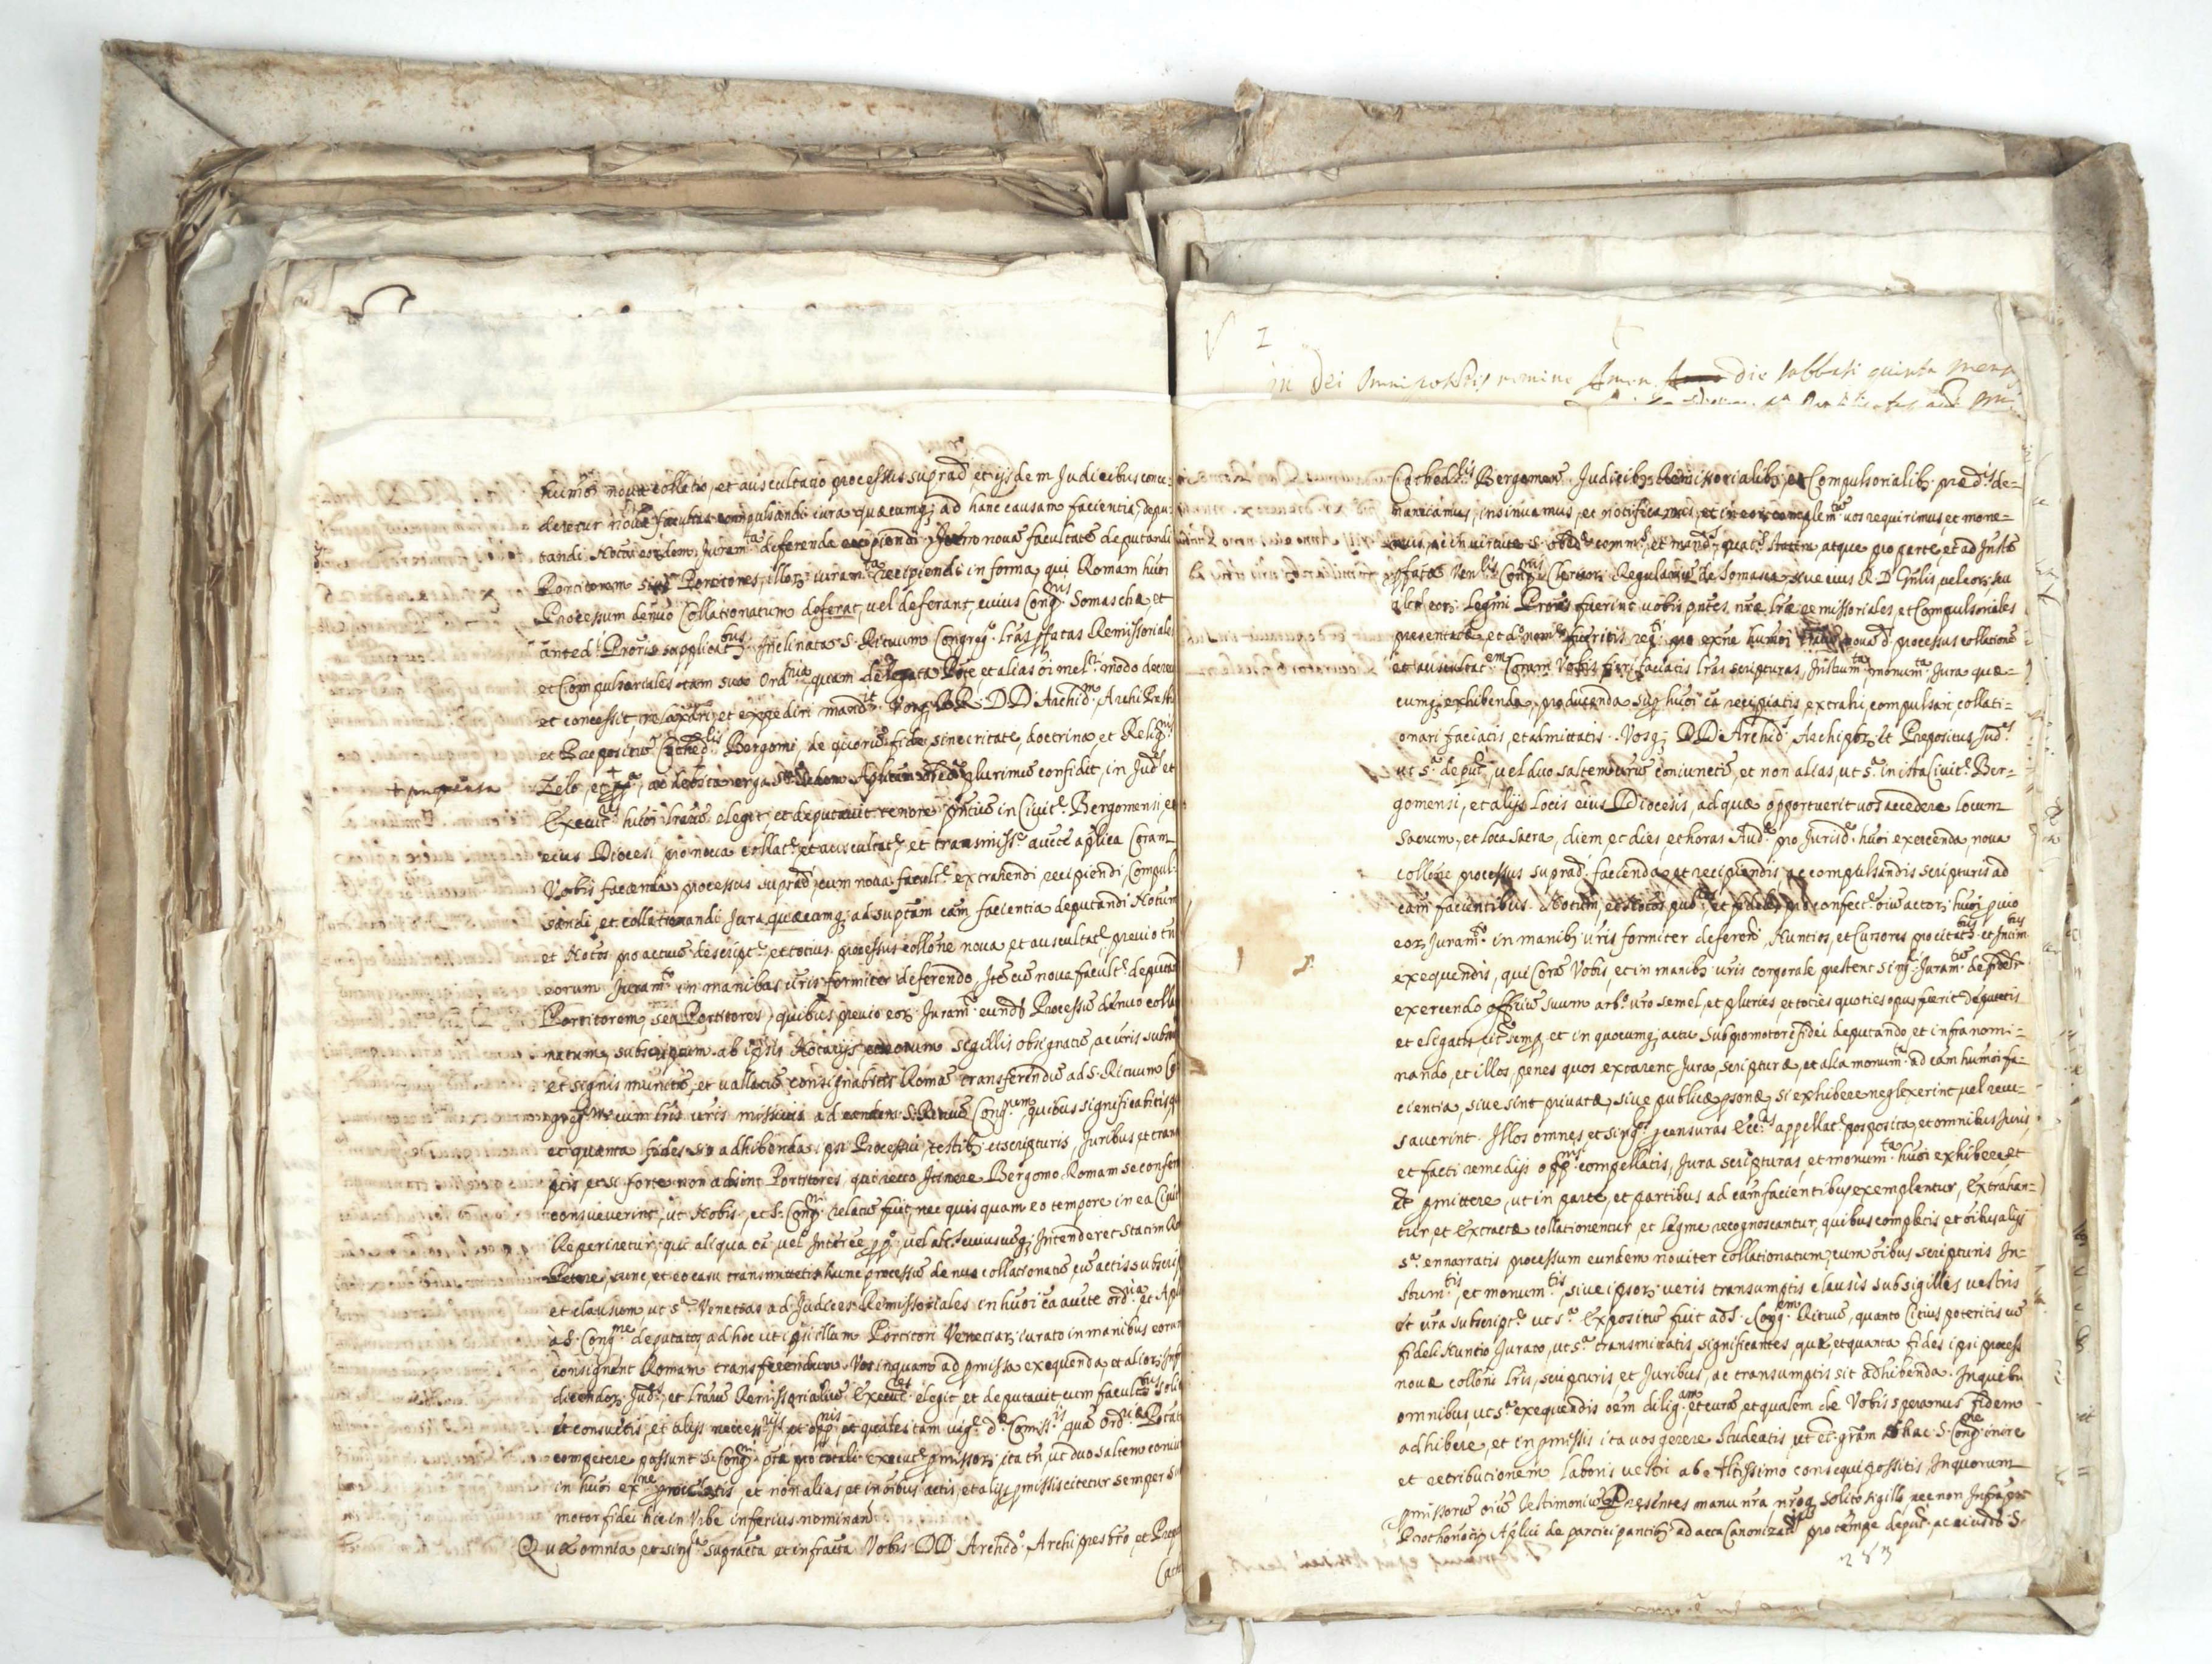 humoi nova collatio, et auscultatio processus suprad. et ijsdem Judicibus conce-
deretur nova facultas compulsandi iura quæcumq; ad hanc causam facientia, depu-
tandi Notos eosdem, Juram.ta deferenda recipiendi. Iterro novas facultates deputandi
Portitorem sive Portitores, illorz iuram.ta recipiendi in forma, qui Romam huoi
Processum denuo Collationatum deferat, vel deferant, cuius Cong.nis Somaschæ et
anted. Proris supplicat.bus inclinata S. Rituum Congreg.o Lras pfatas Remissoriales
et Compulsoriales tam sua Ord.ria quam delegata Pote et alias oi mel.ri modo decrevit
et concessit, relaxari, et expediri mand.it Vosq; RR. DD. Archid.m Archi Presb
et Præpositu Cathed.lis Bergomi, de quorũ fide, sinceritate, doctrina, et Relig.nis
+ propensa
Zelo, et
Execut. huoi Lraru elegit, et deputavit tenore pntiu in Civit.e Bergomensi, et
eius Diocesi pro nova collat.e et auscultat.e et transmiss.e aucte aplica Coram
Vobis facienda processus suprad. cum nova facult.e extrahendi, recipiendi, Compul-
sandi, et collationandi Jura quæcumq; ad suptam cam facientia deputandi Notum
et Notos pro actuu descript.e et totius processus collone nova et auscultat.e previo tn
eorum Juram.to in manibus vris formiter deferendo, Ite cu nova facult.e deputand
Portitorem, seu Portitores, quibus previo eorz Juram.to eund Processu denuo colla
natum, subscriptum ab ipsis Notarijs eorum sigillis obsignatu, ac vris subs
et signis munitu, et vallatu consignabitis Romã transferendu ad S. Rituum Co
greg.nem cum Lris vris missivis ad eandem S. Rituu Cong.nem quibus significabitis q
et quanta fides sit adhibenda ipsi Processui, testibz et scripturis, Juribus, et trans
ptis, et si forte non adsint Portitores, qui recto Itinere Bergomo Romam se confer
consueverint, ut Nobis, et S. Cong.ni relatu fuit, nec quisquam eo tempore in ea Civit
Reperiretur, qui aliqua ca, vel Interee pp.o vel alt.s cuiuscuq; Intenderet statim Ro
Petere, tunc, et eo casu transmittetis hunc processu denuo collationatu, cu actis subscrip
et clausum ut s.a Venetias ad Judices Remissoriales in huoi ca aucte ord.ria et Apli
à S. Cong.ne deputatos, ad hoc ut ipsi illum Portitori Venetiarz iurato in manibus eorum
consignent Romam transferendum. Vos inquam ad pmissa exequenda, et aliorz Inf
dicendorz Jud. et Lraru Remissorialiu Execut. elegit et deputavit cum facult.bus solit
et consuetis, et alijs necess.rijs et opp.nis et quales tam vig.e d.æ Comiss.nis quã Ord.riæ Potat
competere possunt S. Cong.ni ptæ pro totali Execut.e pmissorz, ita tn, ut duo saltem coniu
in huoi ex.ne procedatis, et non alias, et in oibus actis, et alijs pmissis citetur semper Su
motor fidei hic in Urbe inferius nominand.
Quæ omnia, et sing.a supracta et infracta Vobis DD. Archid.o Archipresbro et Præpo
Cathe
in Dei Omnipotentis nomine Amen. die sabbati quinta mens
Cathed.lis Bergomen. Judicibz Remissorialibz, et Compulsorialibz pred.is de-
nunciamus, insinuamus, et notificamus, et in eorz complem.tu vos requirimus, et mone-
mus, ac in virtute S. obed.æ comm.s et mand.s quat.s statim atque pro parte, et ad Instã
pfatæ Ven.lis Cong.nis Clericorz Regulariũ de Somasca, sive eius R. D. Gnlis, vel eorz, seu
alt.s eorz legmi Proris fuerint vobis pntes nræ Lræ remissoriales, et Compulsoriales
presentatæ, et d.o nom.e fueritis req.ti pro exne humoi novæ d. processus collationis
et auscultat.em Coram Vobis fieri faciatis Lras scripturas, Instrum.ta monum.ta Jura quæ-
cumq; exhibenda, producenda sup huoi ca recipiatis, extrahi, compulsari, collati-
onari faciatis, et admittatis. Vosq; DD. Archid. Archipbr et Præpositus Jud.s
ut s.a deput.i vel duo saltem vrũ coniuncti, et non alias, ut s.a in ista Civit.e Ber-
gomensi, et alijs locis eius Diocesis, ad quæ opportuerit vos accedere locum
Sacrum, et loca Sacra, diem, et dies, et horas Aud.æ pro Jurisd.e huoi exercenda, nova
collone processus suprad. facienda, et recipiendis, ac compulsandis scripturis ad
cam facientibus. Notum, et Notos pub.s et fideles pro confect.e oiu actorz huoi pvio
eorz Juram.to in manibz vris formiter deferend. Nuntios, et Cursores pro citat.bus et Intim.bus
exequendis, qui Corã Vobis, et in manibz vris corporale prestent sing.i Juram.tu de fideli
exercendo officiu suum arb.o vro semel, et pluries, et toties quoties opus fuerit deputetis
et eligatis, cit.o semp, et in quocumq; actu Subpromotore fidei deputando et infra nomi-
nando, et illos, penes quos extarent Jura, scripturæ, et alia monum.ta ad cam humoi fa-
cientia, sive sint privatæ, sive publicæ psonæ, si exhibere neglexerint, vel recu-
saverint. Illos omnes, et sing.s p censuras Ecc.as appellat.e posposita, et omnibus Juris,
et facti remedijs opp.nis compellatis, Jura scripturas, et monum.ta huoi exhibere, et
pmittere, ut in parte, et partibus ad cam facientibus exemplentur, Extrahan-
tur, et Extracta collationentur, et legme recognoscantur, quibus completis, et oibus alijs
s.a ennarratis processum eundem noviter collationatum, cum oibus scripturis In-
strum.tis, et monum.tis, sive ipsorz veris transumptis clausis sub sigillis vestris
et vra subscript.e ut s.a Expositu fuit ad S. Cong.em Rituũ, quanto Citius poteritis vo
fideli Nuntio Jurato, ut s.a transmittatis, significantes, quæ, et quanta fides ipsi process
novæ colloni Lris, scripturis, et Juribus, ac transumptis sit adhibenda. In quibu
omnibus, ut s.a exequendis oem dilig.am et curã, et qualem de Vobis speramus fidem
adhibere, et in pmissis ita vos gerere studeatis, ut et grãm ab hac S. Cong.ne inire
et retributionem laboris vestri ab Altissimo consequi possitis. In quorum
pmissorũ oiũ testimoniũ Presentes manu nra nroq; solito sigillo, nec non Infrapti
Prothonotrij Aplici de participantibz ad acta Canonizat.num pro tempe deput. ac eiusdẽ S.
283